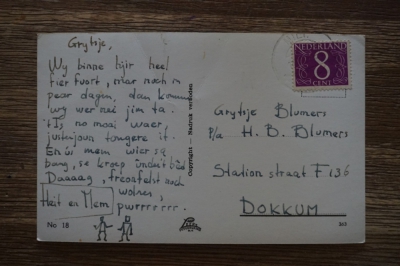 Grytsje,
Wy binne hjir heel
fier fuort, mar noch in
pear dagen, dan komme
wy wer nei jim ta.
't Is no moai waer,
justerjoun tongere it.
En ús mem wier sa
bang, se kroep ûnder it bêd
Daaaag, treoafelst noch
Heit en Mem
wolris,
pwrrrrrr.
No 18
Copyright - Nadruk verboden
NEDERLAND
8
CENT
Grytsje Blumers
p/a H. B. Blumers
Stationstraat F136
DOKKUM